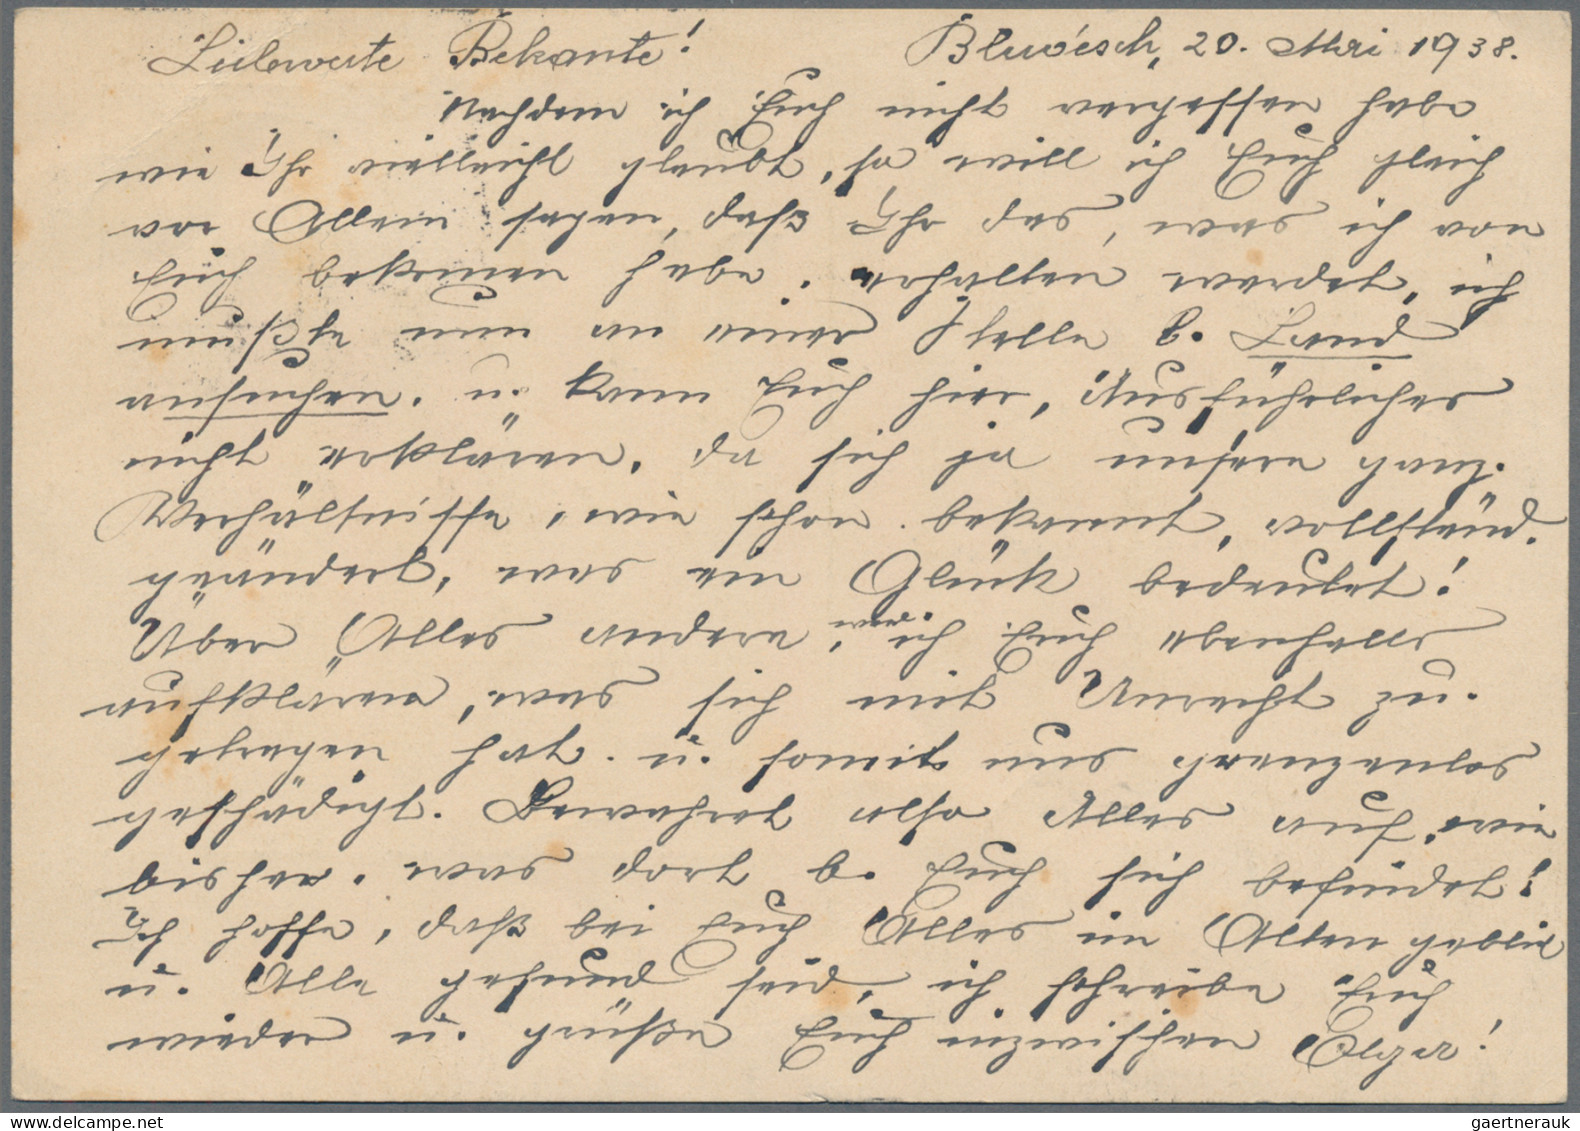 Liebwerte Bekannte! Bluvésch, 20. Mai 1938.
Nachdem ich Euch nicht vergessen habe
wie Ihr vielleicht glaubt, so will ich Euch gleich
vor Allem sagen, daß Ihr das, was ich von
Euch bekomen habe, erhalten werdet, ich
mußte nun an einer Stelle b. Land
ansuchen. u. kann Euch hier, Ausführliches
nicht erklären, da sich ja unsere ganz.
Verhältnisse, wie schon bekannt, vollständ.
geändert, was ein Glück bedeutet!
Über Alles andere, werd ich Euch ebenfalls
aufklären, was sich mit Unrecht zu-
getragen hat u. somit uns grenzenlos
geschädigt. Bewahret also Alles auf, wie
bisher, was dort b. Euch sich befindet!
Ich hoffe, daß bei Euch Alles im Alten geblieb
u. Alle gesund seid, ich schreibe Euch
wieder u. grüße Euch inzwischen Olga!
gaertnerauk